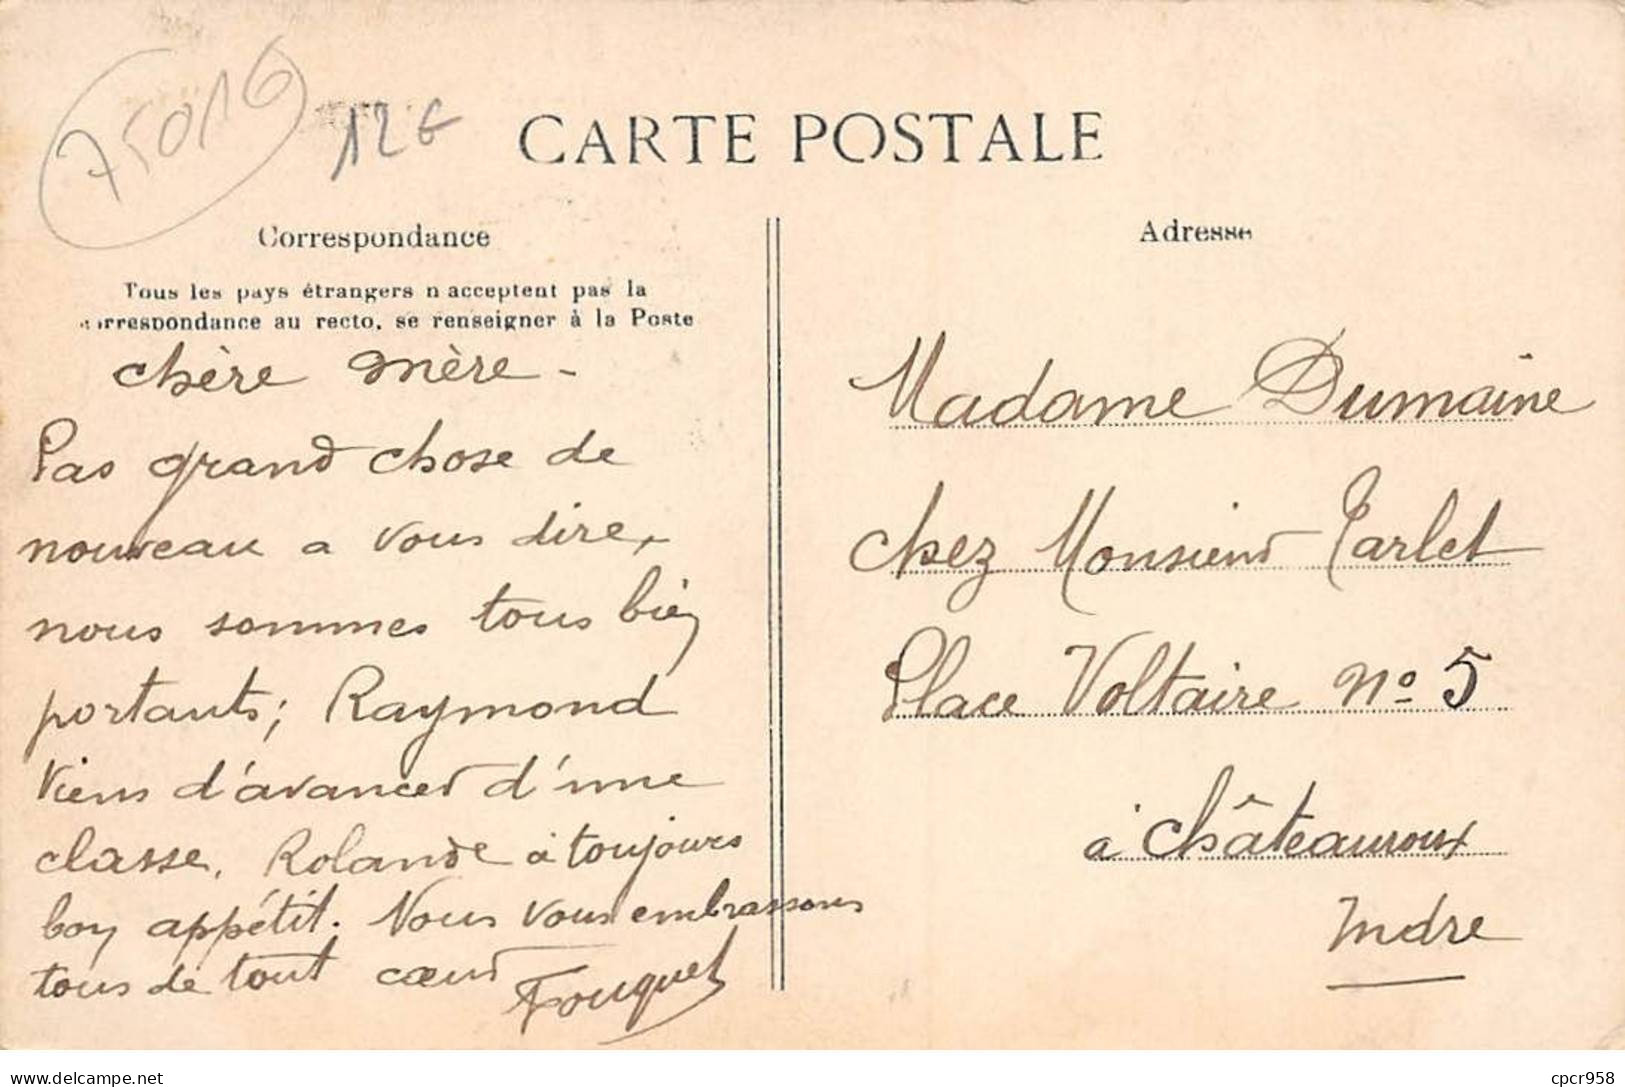 75016
12€
CARTE POSTALE
Correspondance
Tous les pays étrangers n acceptent pas la
correspondance au recto, se renseigner à la Poste
chère mère -
Pas grand chose de
nouveau a vous dire,
nous sommes tous bien
portants; Raymond
viens d'avancer d'une
classe. Rolande à toujours
bon appétit. Nous vous embrassons
tous de tout cœur
Fouquet
Adresse
Madame Dumaine
chez Monsieur Tarlet
Place Voltaire No 5
à Châteauroux
Indre
delcampe.net
cpcr958